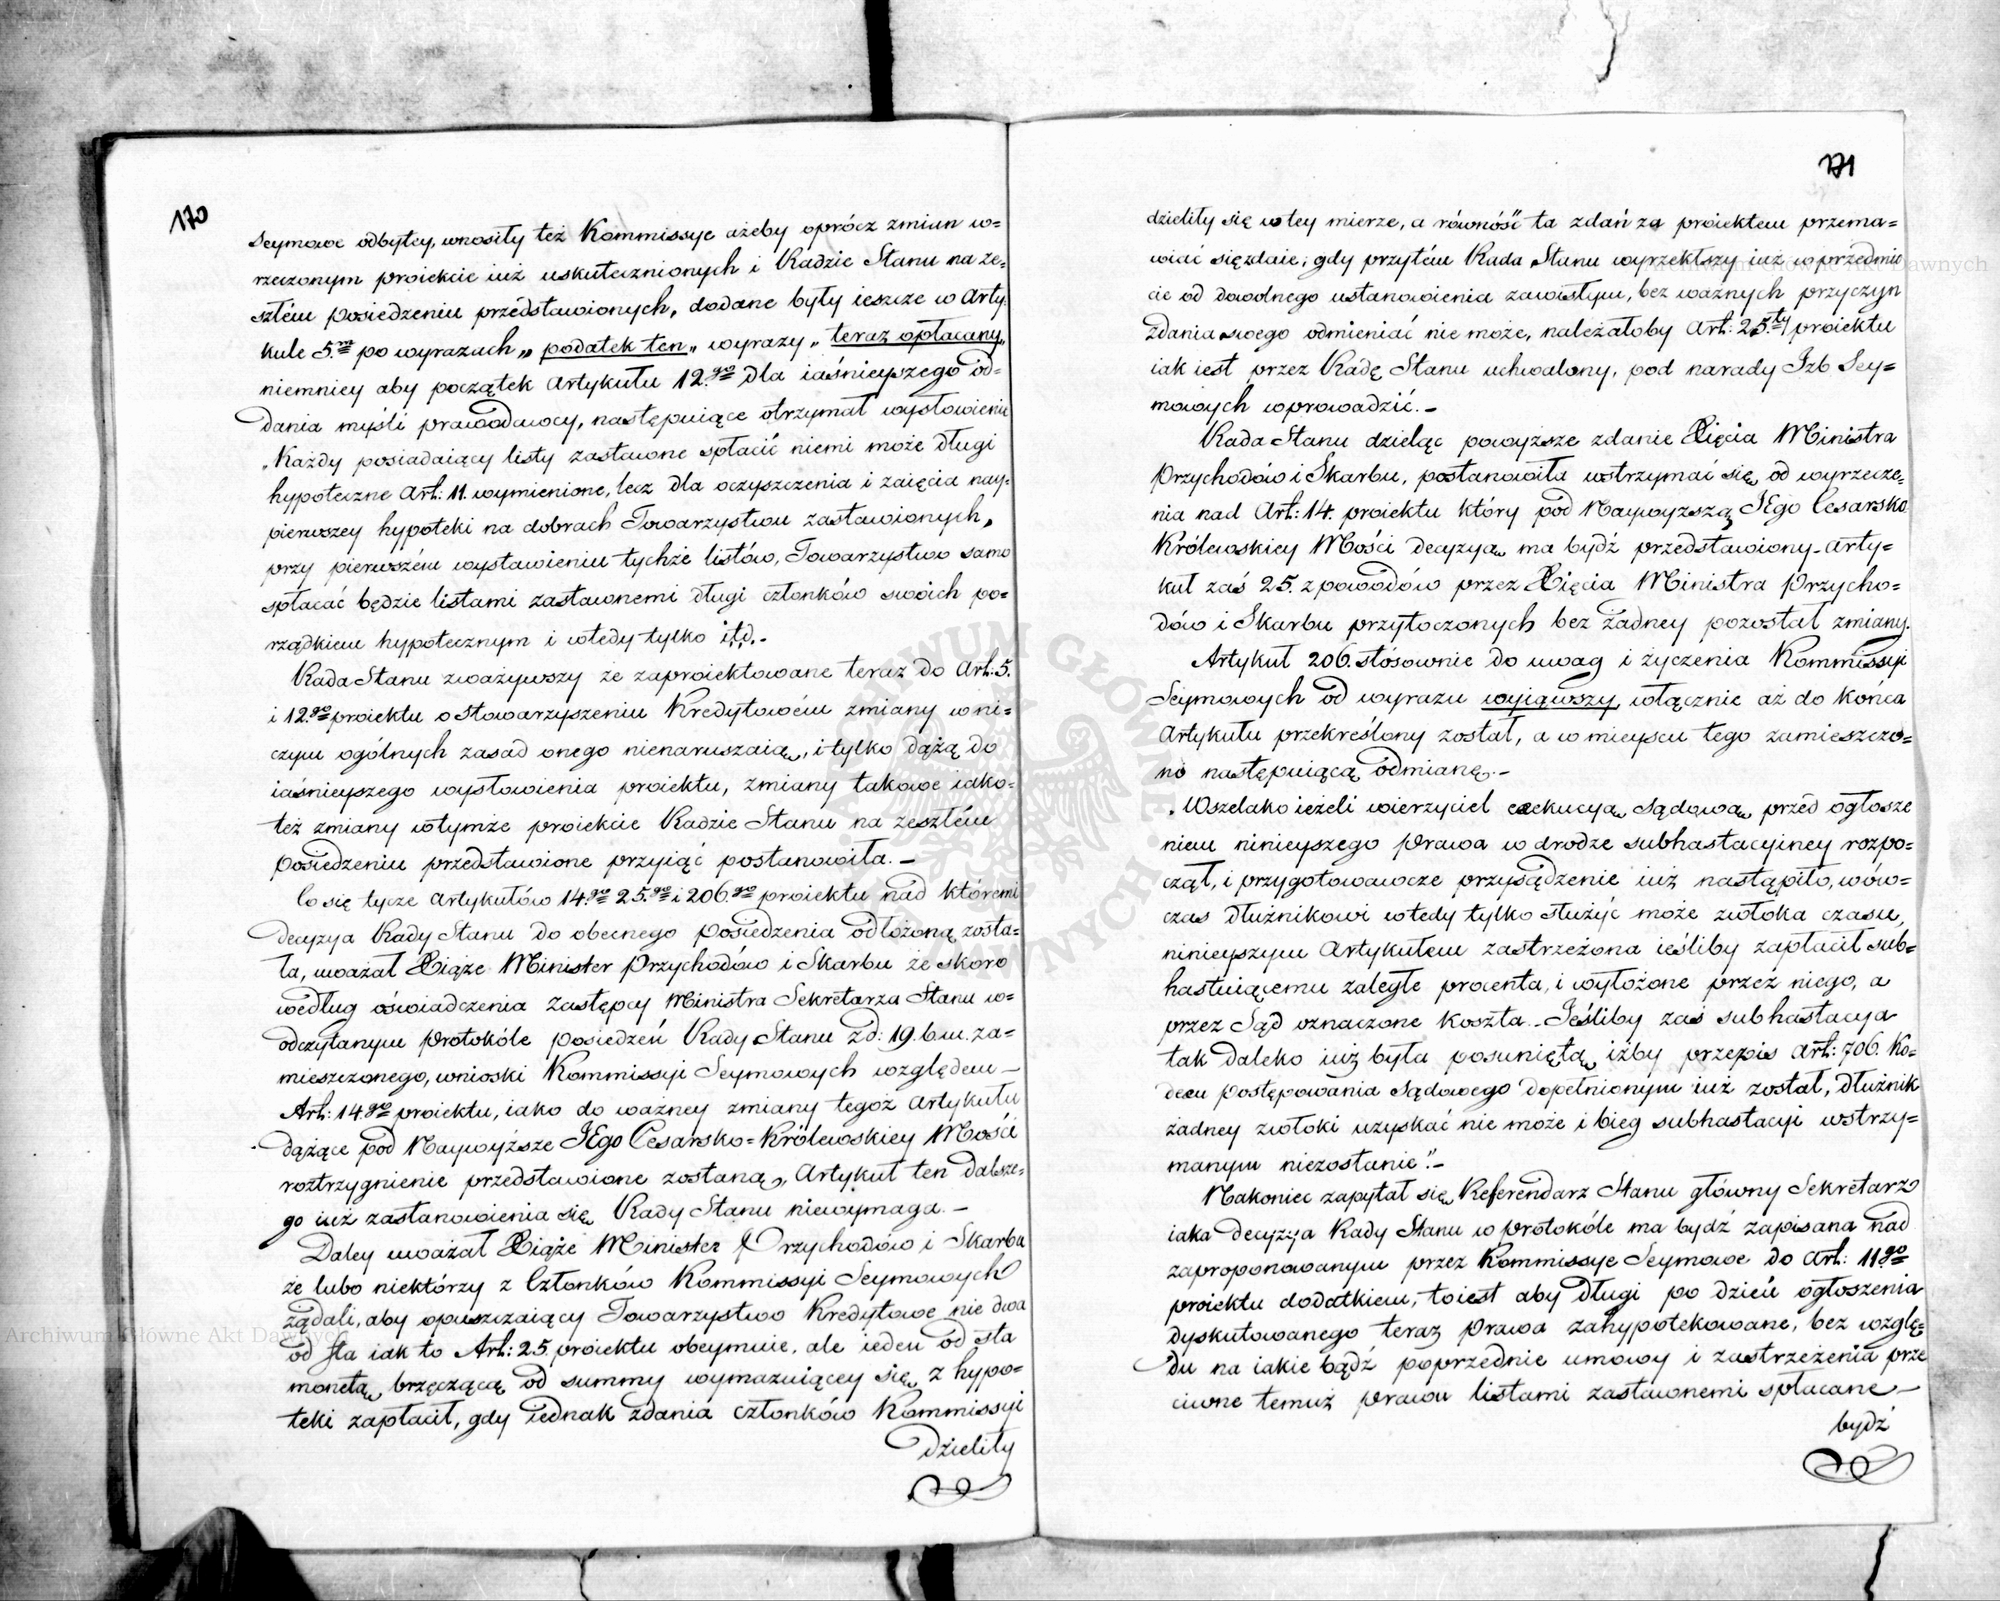 170
Seymowe odbytey, wnosiły też Kommissye ażeby oprócz zmian w o=
rzeczonym proiekcie iuż uskutecznionych i Radzie Stanu na ze=
szłém posiedzeniu przedstawionych, dodane były ieszcze w Arty
kule 5.ym po wyrazach „podatek ten„ wyrazy „teraz opłacany„
niemniey aby początek Artykułu 12.go dla iaśnieyszego od=
dania myśli prawodawcy, następuiące otrzymał wysłowienie
„Każdy posiadaiący listy zastawne spłacić niemi może długi
hypoteczne Art: 11. wymienione, lecz dla oczyszczenia i zaięcia nay=
pierwszey hypoteki na dobrach Towarzystwu zastawionych,
przy pierwszém wystawieniu tychże listów, Towarzystwo samo
spłacać będzie listami zastawnemi długi członków swoich po=
rządkiem hypotecznym i wtedy tylko itd.-
Rada Stanu zważywszy że zaproiektowane teraz do Art: 5.
i 12.go proiektu o stowarzyszeniu Kredytowém zmiany w ni=
czym ogólnych zasad onego nienaruszaią, i tylko dążą do
iaśnieyszego wysłowienia proiektu, zmiany takowe iako=
też zmiany w tymże proiekcie Radzie Stanu na zeszłém
posiedzeniu przedstawione przyiąć postanowiła.-
Co się tycze Artykułów 14.go 25.go i 206.go proiektu nad któremi
decyzya Rady Stanu do obecnego posiedzenia odłożoną zosta=
ła, uważał Xiąże Minister Przychodów i Skarbu że skoro
według oświadczenia Zastępcy Ministra Sekretarza Stanu w o=
odczytanym Protokóle posiedzeń Rady Stanu z d: 19. b.m. za=
mieszczonego, wnioski Kommissyi Seymowych względem -
Art: 14.go proiektu, iako do ważney zmiany tegoż Artykułu
dążące pod Naywyższe JEgo Cesarsko=Królewskiey Mości
roztrzygnienie przedstawione zostaną, Artykuł ten dalsze=
go iuż zastanowienia się Rady Stanu niewymaga.-
Daley uważał Xiąże Minister Przychodów i Skarbu
że lubo niektórzy z Członków Kommissyi Seymowych
żądali, aby opuszczaiący Towarzystwo Kredytowe nie dwa
od sta iak to Art: 25 proiektu obeymuie, ale ieden od sta
monetą brzęczącą od summy wymazuiącey się z hypo=
teki zapłacił, gdy iednak zdania członków Kommissyi
dzieliły
171
dzieliły się w tey mierze, a równość ta zdań za proiektem przema=
wiać się zdaie; gdy przytém Rada Stanu wyrzekłszy iuż w przedmio
cie od dowolnego ustanowienia zawisłym, bez ważnych przyczyn
zdania swego odmieniać nie może, należałoby Art: 25.ty proiektu
iak iest przez Radę Stanu uchwalony, pod narady Izb Sey=
mowych wprowadzić.-
Rada Stanu dzieląc powyższe zdanie Xięcia Ministra
Przychodów i Skarbu, postanowiła wstrzymać się od wyrzecze=
nia nad Art: 14. proiektu który pod Naywyższą JEgo Cesarsko
Królewskiey Mości decyzyą ma bydź przedstawiony. Arty=
kuł zaś 25. z powodów przez Xięcia Ministra Przycho=
dów i Skarbu przytoczonych bez żadney pozostał zmiany.
Artykuł 206. stósownie do uwag i życzenia Kommissyi
Seymowych od wyrazu wyiąwszy włącznie aż do końca
Artykułu przekreślony został, a w mieyscu tego zamieszczo=
no następuiącą odmianę.-
„Wszelako ieżeli wierzyciel exekucyą sądową przed ogłosze
niem ninieyszego Prawa w drodze subhastacyiney rozpo=
czął, i przygotowawcze przysądzenie iuż nastąpiło, wów=
czas dłużnikowi wtedy tylko służyć może zwłoka czasu,
ninieyszym Artykułem zastrzeżona ieśliby zapłacił sub=
hastuiącemu zaległe procenta, i wyłożone przez niego, a
przez Sąd oznaczone koszta. Jeśliby zaś subhastacya
tak daleko iuż była posunięta, iżby przepis Art: 706. Ko=
dexu Postępowania Sądowego dopełnionym iuż został, dłużnik
żadney zwłoki uzyskać nie może i bieg subhastacyi wstrzy=
manym niezostanie".-
Nakoniec zapytał się Referendarz Stanu główny Sekretarz
iaka decyzya Rady Stanu w protokóle ma bydź zapisana nad
zaproponowanym przez Kommissye Seymowe do Art: 11.go
proiektu dodatkiem, to iest aby długi po dzień ogłoszenia
dyskutowanego teraz Prawa zahypotekowane, bez wzglę=
du na iakie bądź poprzednie umowy i zastrzeżenia prze
ciwne temuż Prawu listami zastawnemi spłacane -
bydź